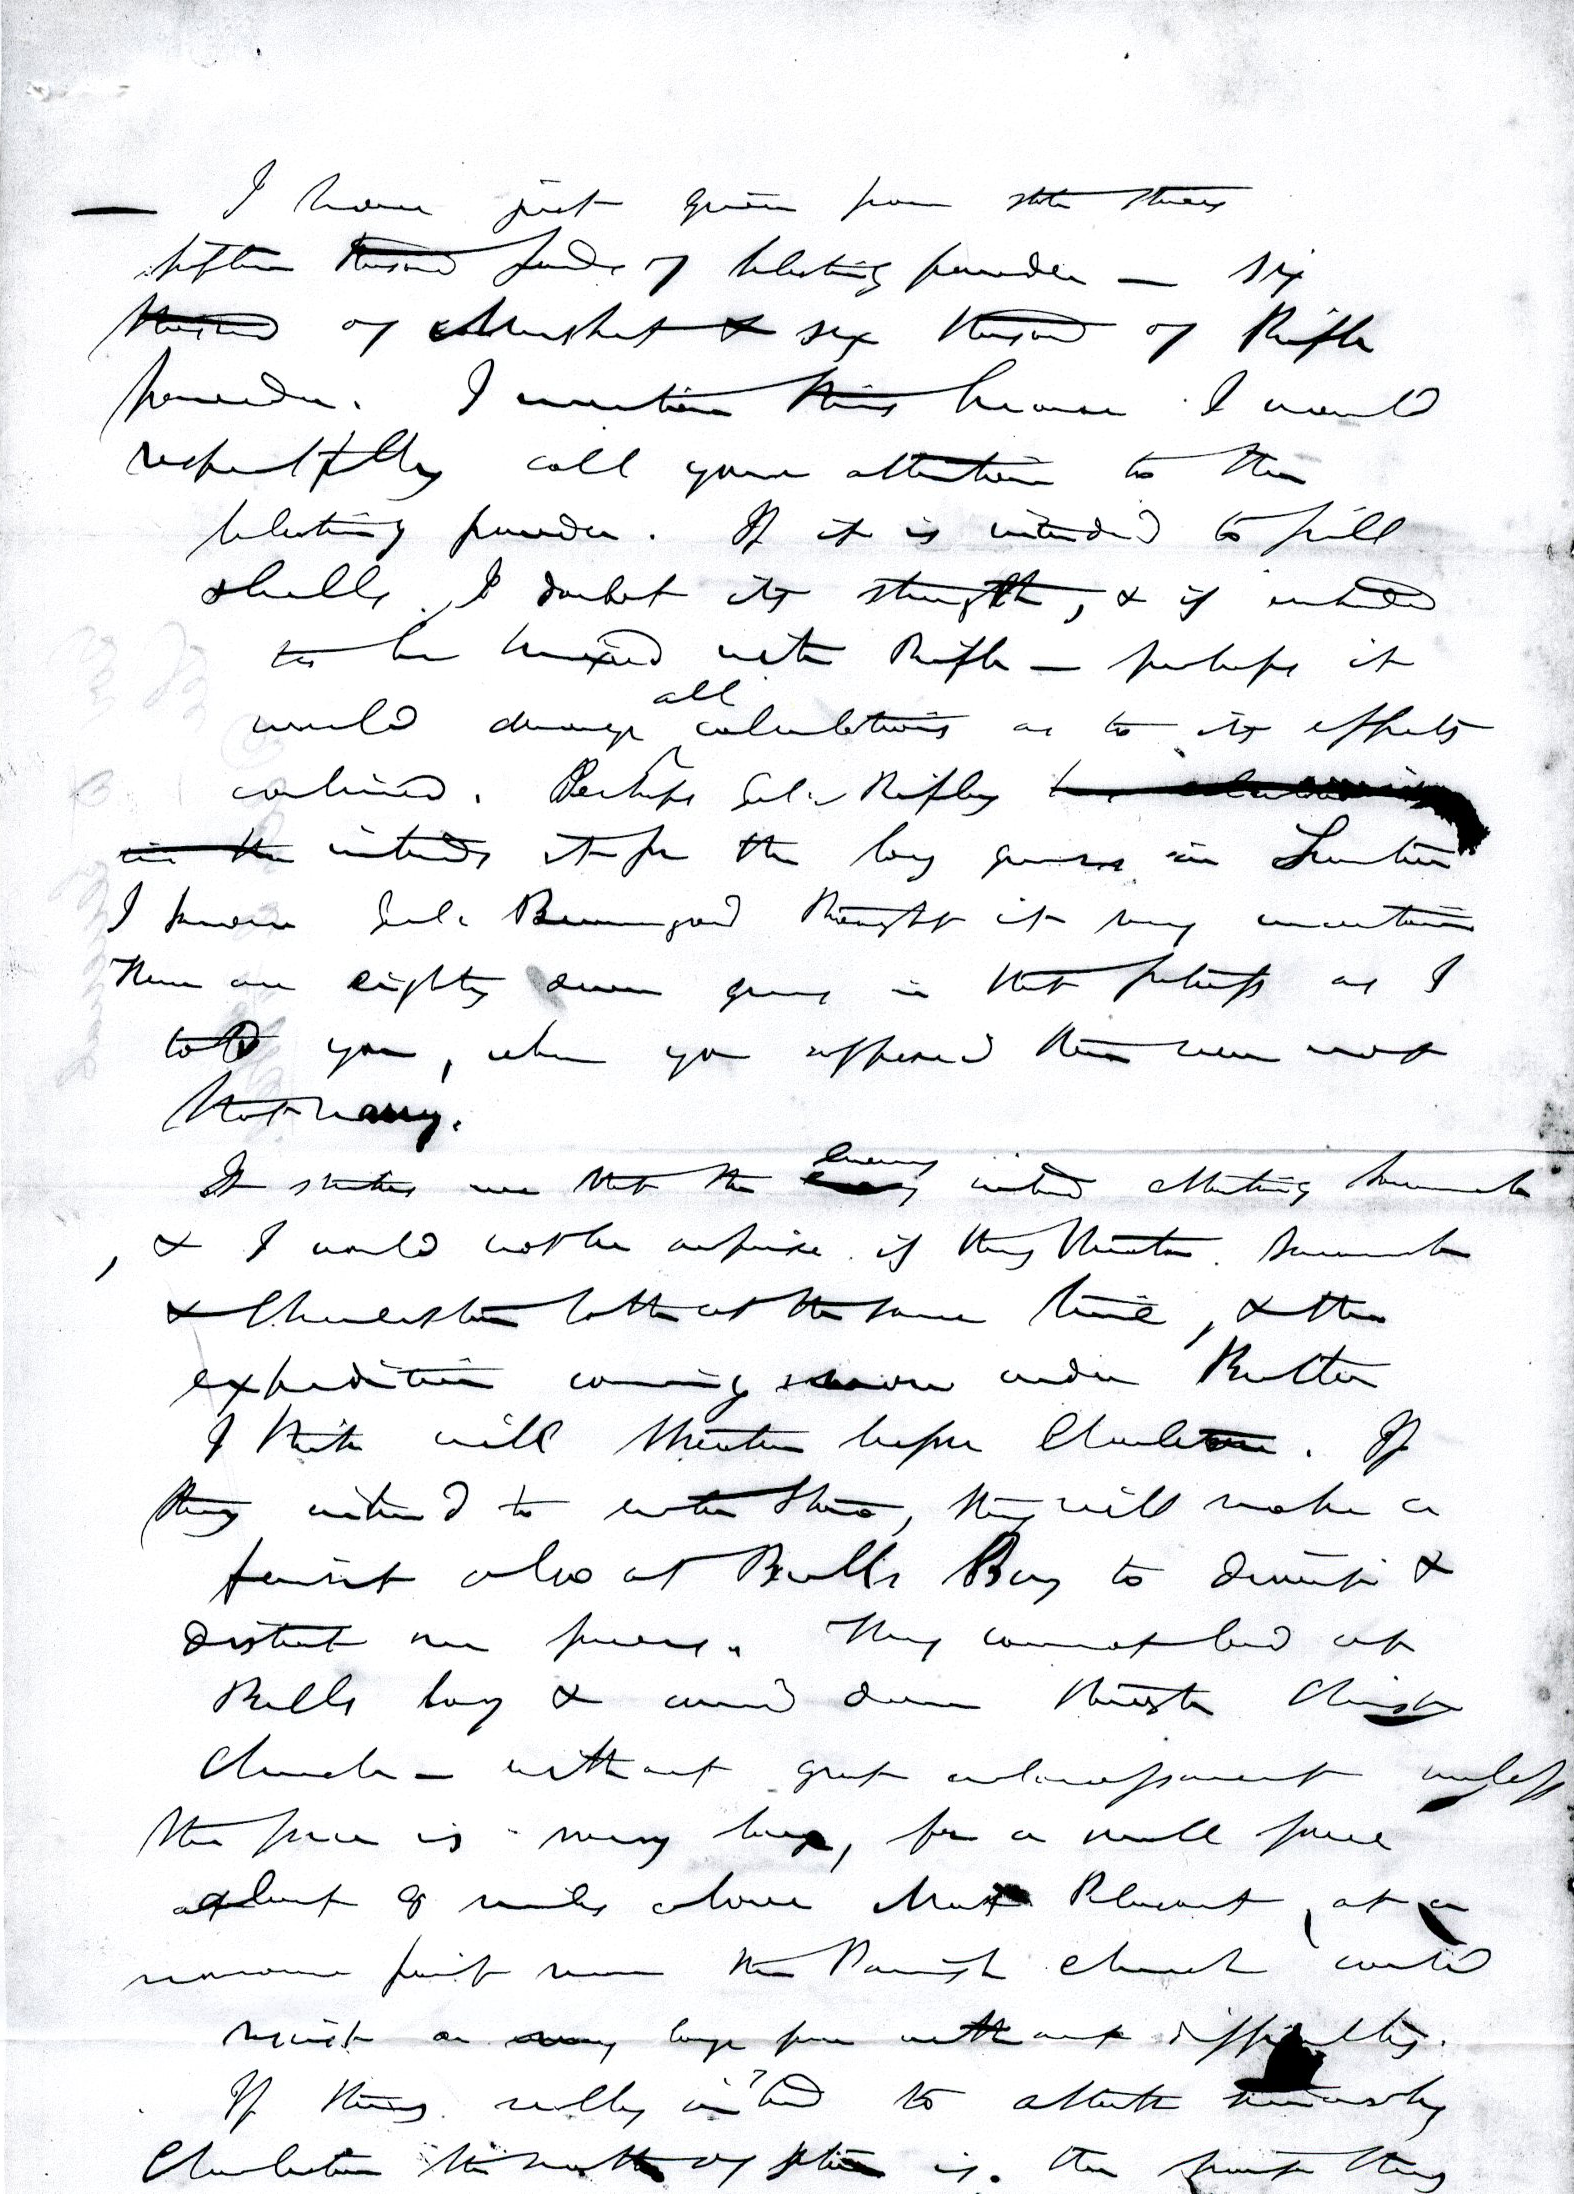 I have just given from state stores
fifteen thousand pounds of blasting powder — six
thousand of Musket & six thousand of Rifle
powder. I mention this because I would
respectfully call your attention to the
blasting powder. If it is intended to fill
shells, I doubt its strength, & if intended
to be mixed with Rifle — perhaps it
would derange all calculations as to its effects
combined. Perhaps Genl. Ripley
in the intends it for the long guns in Sumter
I know Genl. Beauregard thought it very uncertain
There are eighty seven guns in that fortress as I
told you, when you supposed there were not
that many.
It strikes me that the enemy intend attacking Savannah
, & I would not be surprise if they threaten Savannah
& Charleston both at the same time, & the
expedition coming now under Butler
I think will threaten before Charleston. If
they intend to enter Stono, they will make a
feint also at Bulls Bay to divert &
distract our forces. They cannot land at
Bulls bay & come down through Christ
Church — without great embarrassment unless
the force is very large, for a small force
about 8 miles above Mount Pleasant, at a
narrow point near the Parish church could
resist a very large force without difficulty.
If they really intend to attack seriously
Charleston the mouth of Stono is the point they